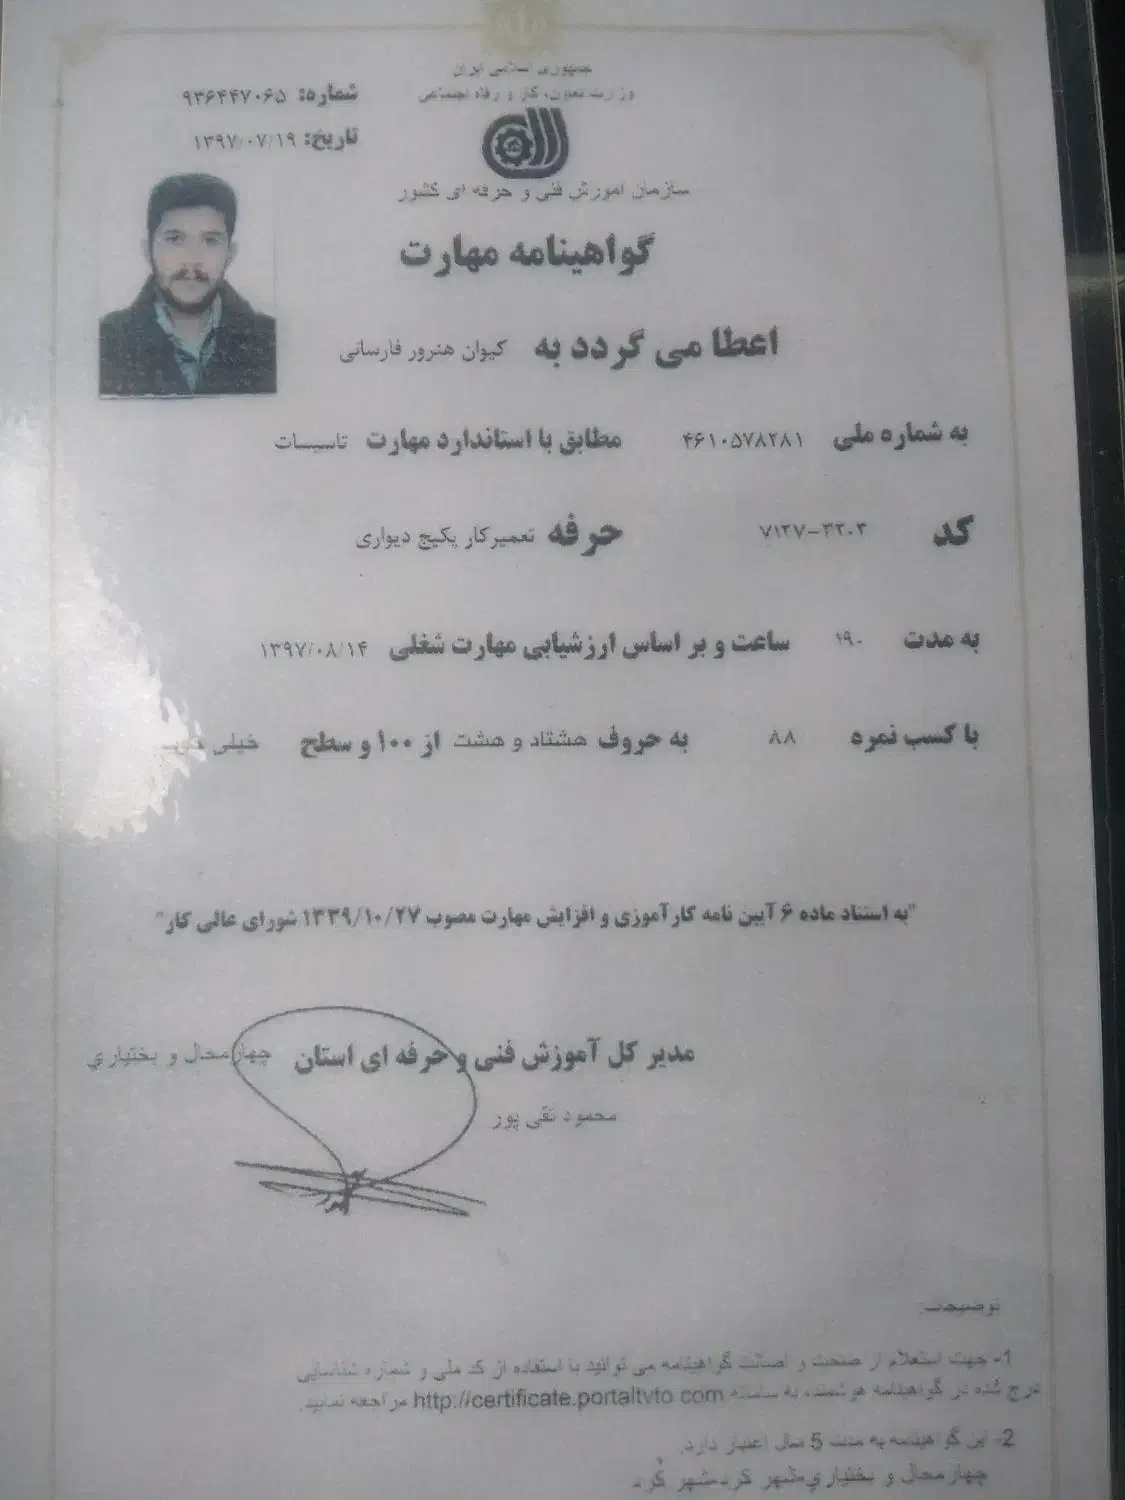 جمهوری اسلامی ایران
وزارت تعاون، کار و رفاه اجتماعی
شماره: ۹۳۶۴۴۷۰۶۵
تاریخ: ۱۳۹۷/۰۷/۱۹
سازمان آموزش فنی و حرفه ای کشور
گواهینامه مهارت
اعطا می گردد به کیوان هنرور فارسانی
به شماره ملی ۴۶۱۰۵۷۸۲۸۱ مطابق با استاندارد مهارت تاسیسات
کد ۷۱۲۷-۳۲۰۳ حرفه تعمیرکار پکیج دیواری
به مدت ۱۹۰ ساعت و بر اساس ارزشیابی مهارت شغلی ۱۳۹۷/۰۸/۱۴
با کسب نمره ۸۸ به حروف هشتاد و هشت از ۱۰۰ و سطح خیلی
"به استناد ماده ۶ آیین نامه کارآموزی و افزایش مهارت مصوب ۱۳۳۹/۱۰/۲۷ شورای عالی کار"
مدیر کل آموزش فنی و حرفه ای استان چهارمحال و بختیاری
محمود تقی پور
توضیحات:
1- جهت استعلام از صحت و اصالت گواهینامه می توانید با استفاده از کد ملی و شماره شناسایی
درج شده در گواهینامه هوشمند، به سامانه http://certificate.portaltvto.com مراجعه نمایید.
2- این گواهینامه به مدت 5 سال اعتبار دارد.
چهارمحال و بختیاری-شهر کرد-شهر کرد